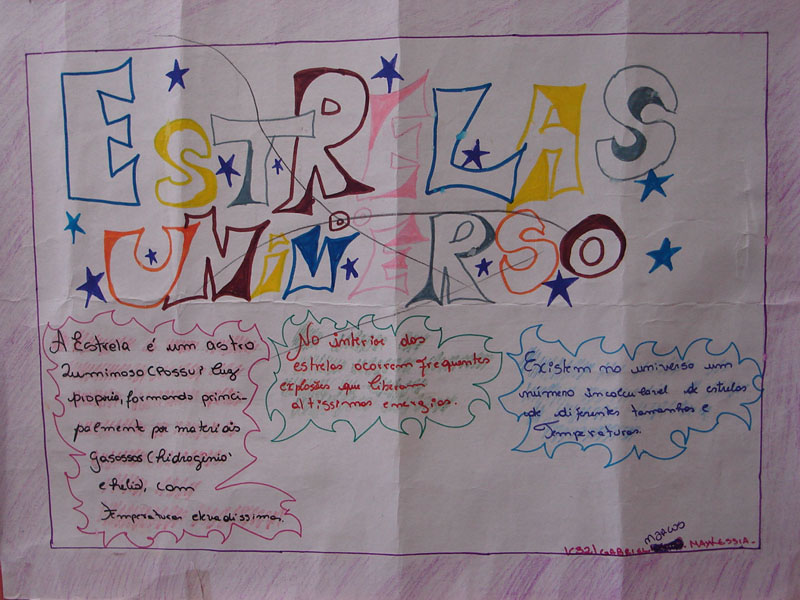 ESTRELAS
UNIVERSO
A Estrela é um astro
Luminoso (Possui luz
propria, formando princi-
palmente por materiais
gasosos (hidrogênio
e helio), com
Temperaturas elevadissimas.
No interior das
estrelas ocorrem frequentes
explosões que liberam
altissimas energias.
Existem no universo um
número incalculavel de estrelas
de diferentes tamanhos e
Temperaturas.
MARCOS
GABRIEL